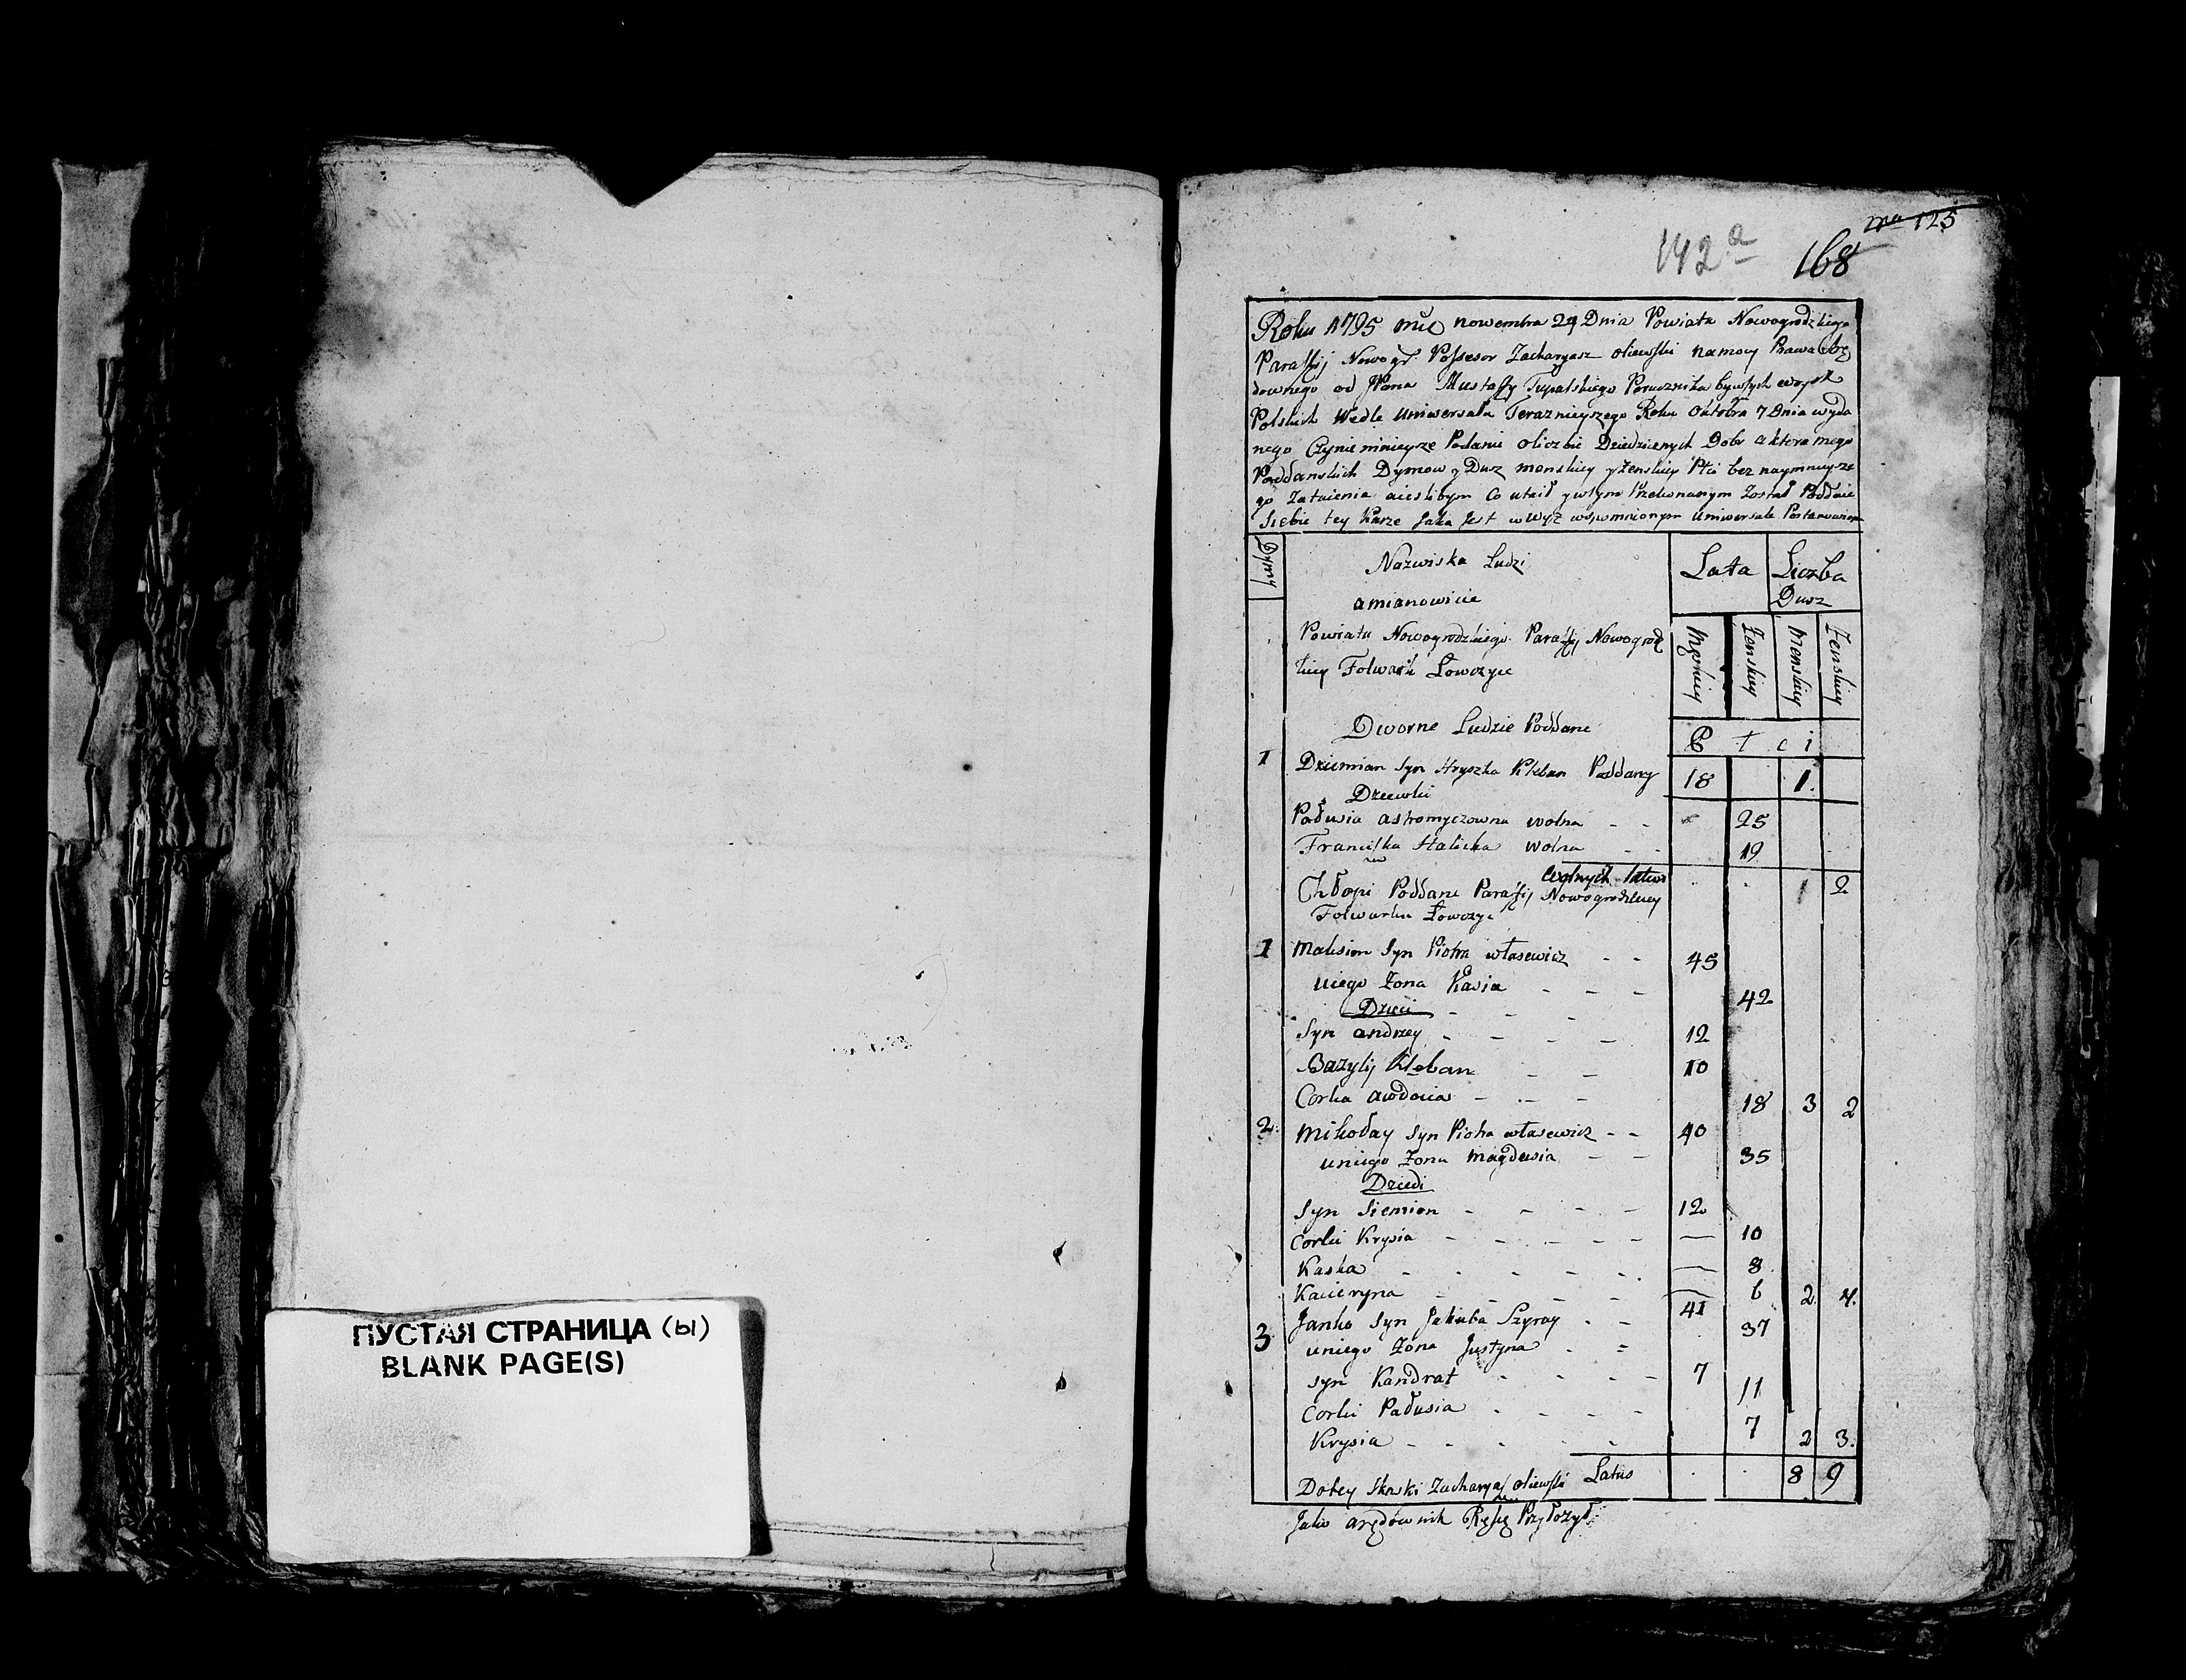 ПУСТАЯ СТРАНИЦА (ы)
BLANK PAGE(S)
125
142a
168
Roku 1795 nowembra 24 Dnia Powiatu Nowogrodzkiego
Paraffij Nowogr. Possesor Zacharyasz oliewski na mocy Prawa
downego od JPana Mustaffy Tupalskiego Porucznika bywszych woysk
Polskich Wedle Uniwersału Teraznieyszego Roku Oktobra 7 Dnia wyda
nego Czynie ninieysze Podanie oliczbie Dziedzicznych Dobr aktoramego
Poddanskich Dymow y Dusz menskiey y żenskiey Płci bez naymnieysze
go Zataienia aieslibym Co utaił ywtym Przekonanym Został Poddaie
Siebie tey Karze Jaka Jest w wyż wspomnionym Uniwersale Postanowiona
Dymy
Nazwiska Ludzi
amianowicie
Lata
Liczba
Dusz
Powiatu Nowogrodzkiego Paraffij Nowogrodz
kiey Folwark Lowczyce
Męskiey
Żenskiey
Menskiey
Żenskiey
Dworne Ludzie Poddane
P t c i
1 Dziemian Syn Hryszka Kleban Poddany 18 1.
Dziewki
Pałusia astromyczowna wolna - - 25
Franciszka Halicka wolna - - 19
wolnych latus 1 2
Chłopi Poddane Paraffij Nowogrodzkiey
Folwarku Łowczyc
1 Maksim Syn Piotra własewicz - - 45
uiego Żona Kasia - - - 42
Dzieci - - -
Syn andrzey - - - - 12
Bazylij Kleban - - 10
Corka awdocia - - - 18 3 2
2. Mikołay Syn Piotra własewicz - - 40
uniego Żona Magdusia - - 35
Dzieci
Syn Siemion - - - - 12
Corki Krysia - - - - - 10
Kaska - - - - - 8
Kacieryna - - - - 6 2. 4.
3 Janko Syn Jakuba Szyray - - 41
uniego Żona Justyna - - 37
syn Kandrat - - - - 7
Corki Pałusia - - - - 11
Krysia - - - - 7 2 3.
Latus 8 9
Dotey Zacharyasz oliewski
Jako arędownik Rękę Przyłożył